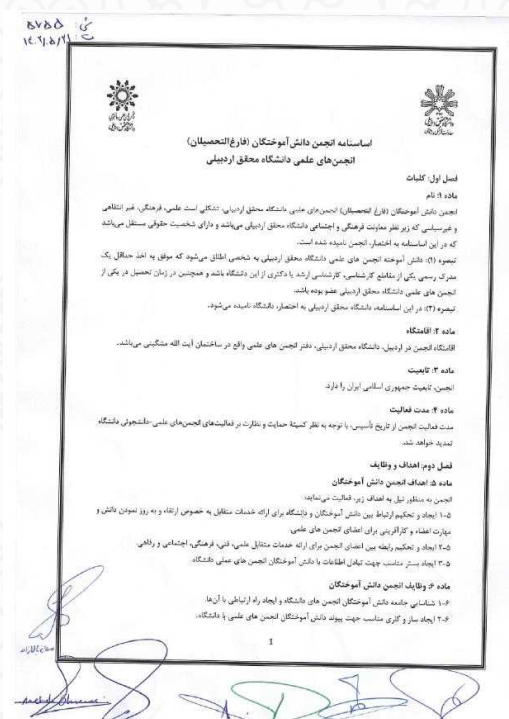 ش: ۵۷۵۵
ت: ۱۴۰۲/۵/۲۱
اساسنامه انجمن دانش آموختگان (فارغ‌التحصیلان)
انجمن‌های علمی دانشگاه محقق اردبیلی
فصل اول: کلیات
ماده ۱: نام
انجمن دانش آموختگان (فارغ التحصیلان) انجمن‌های علمی دانشگاه محقق اردبیلی، تشکلی است علمی، فرهنگی، غیر انتفاهی
و غیرسیاسی که زیر نظر معاونت فرهنگی و اجتماعی دانشگاه محقق اردبیلی می‌باشد و دارای شخصیت حقوقی مستقل می‌باشد
که در این اساسنامه به اختصار، انجمن نامیده شده است.
تبصره (۱): دانش آموخته انجمن های علمی دانشگاه محقق اردبیلی به شخصی اطلاق می‌شود که موفق به اخذ حداقل یک
مدرک رسمی یکی از مقاطع کارشناسی، کارشناسی ارشد یا دکتری از این دانشگاه باشد و همچنین در زمان تحصیل در یکی از
انجمن های علمی دانشگاه محقق اردبیلی عضو بوده باشد.
تبصره (۲): در این اساسنامه، دانشگاه محقق اردبیلی به اختصار، دانشگاه نامیده می‌شود.
ماده ۲: اقامتگاه
اقامتگاه انجمن در اردبیل، دانشگاه محقق اردبیلی، دفتر انجمن های علمی واقع در ساختمان آیت الله مشگینی می‌باشد.
ماده ۳: تابعیت
انجمن، تابعیت جمهوری اسلامی ایران را دارد.
ماده ۴: مدت فعالیت
مدت فعالیت انجمن از تاریخ تأسیس، با توجه به نظر کمیتۀ حمایت و نظارت بر فعالیت‌های انجمن‌های علمی-دانشجوئی دانشگاه
تمدید خواهد شد.
فصل دوم: اهداف و وظایف
ماده ۵: اهداف انجمن دانش آموختگان
انجمن به منظور نیل به اهداف زیر، فعالیت می‌نماید:
۵-۱ ایجاد و تحکیم ارتباط بین دانش آموختگان و دانشگاه برای ارائه خدمات متقابل به خصوص ارتقاء و به روز نمودن دانش و
مهارت اعضاء و کارآفرینی برای اعضای انجمن های علمی.
۵-۲ ایجاد و تحکیم رابطه بین اعضای انجمن برای ارائه خدمات متقابل علمی، فنی، فرهنگی، اجتماعی و رفاهی.
۵-۳ ایجاد بستر مناسب جهت تبادل اطلاعات با دانش آموختگان انجمن های عملی دانشگاه.
ماده ۶: وظایف انجمن دانش آموختگان
۶-۱ شناسایی جامعه دانش آموختگان انجمن های دانشگاه و ایجاد راه ارتباطی با آن‌ها.
۶-۲ ایجاد ساز و کاری مناسب جهت پیوند دانش آموختگان انجمن های علمی با دانشگاه.
1